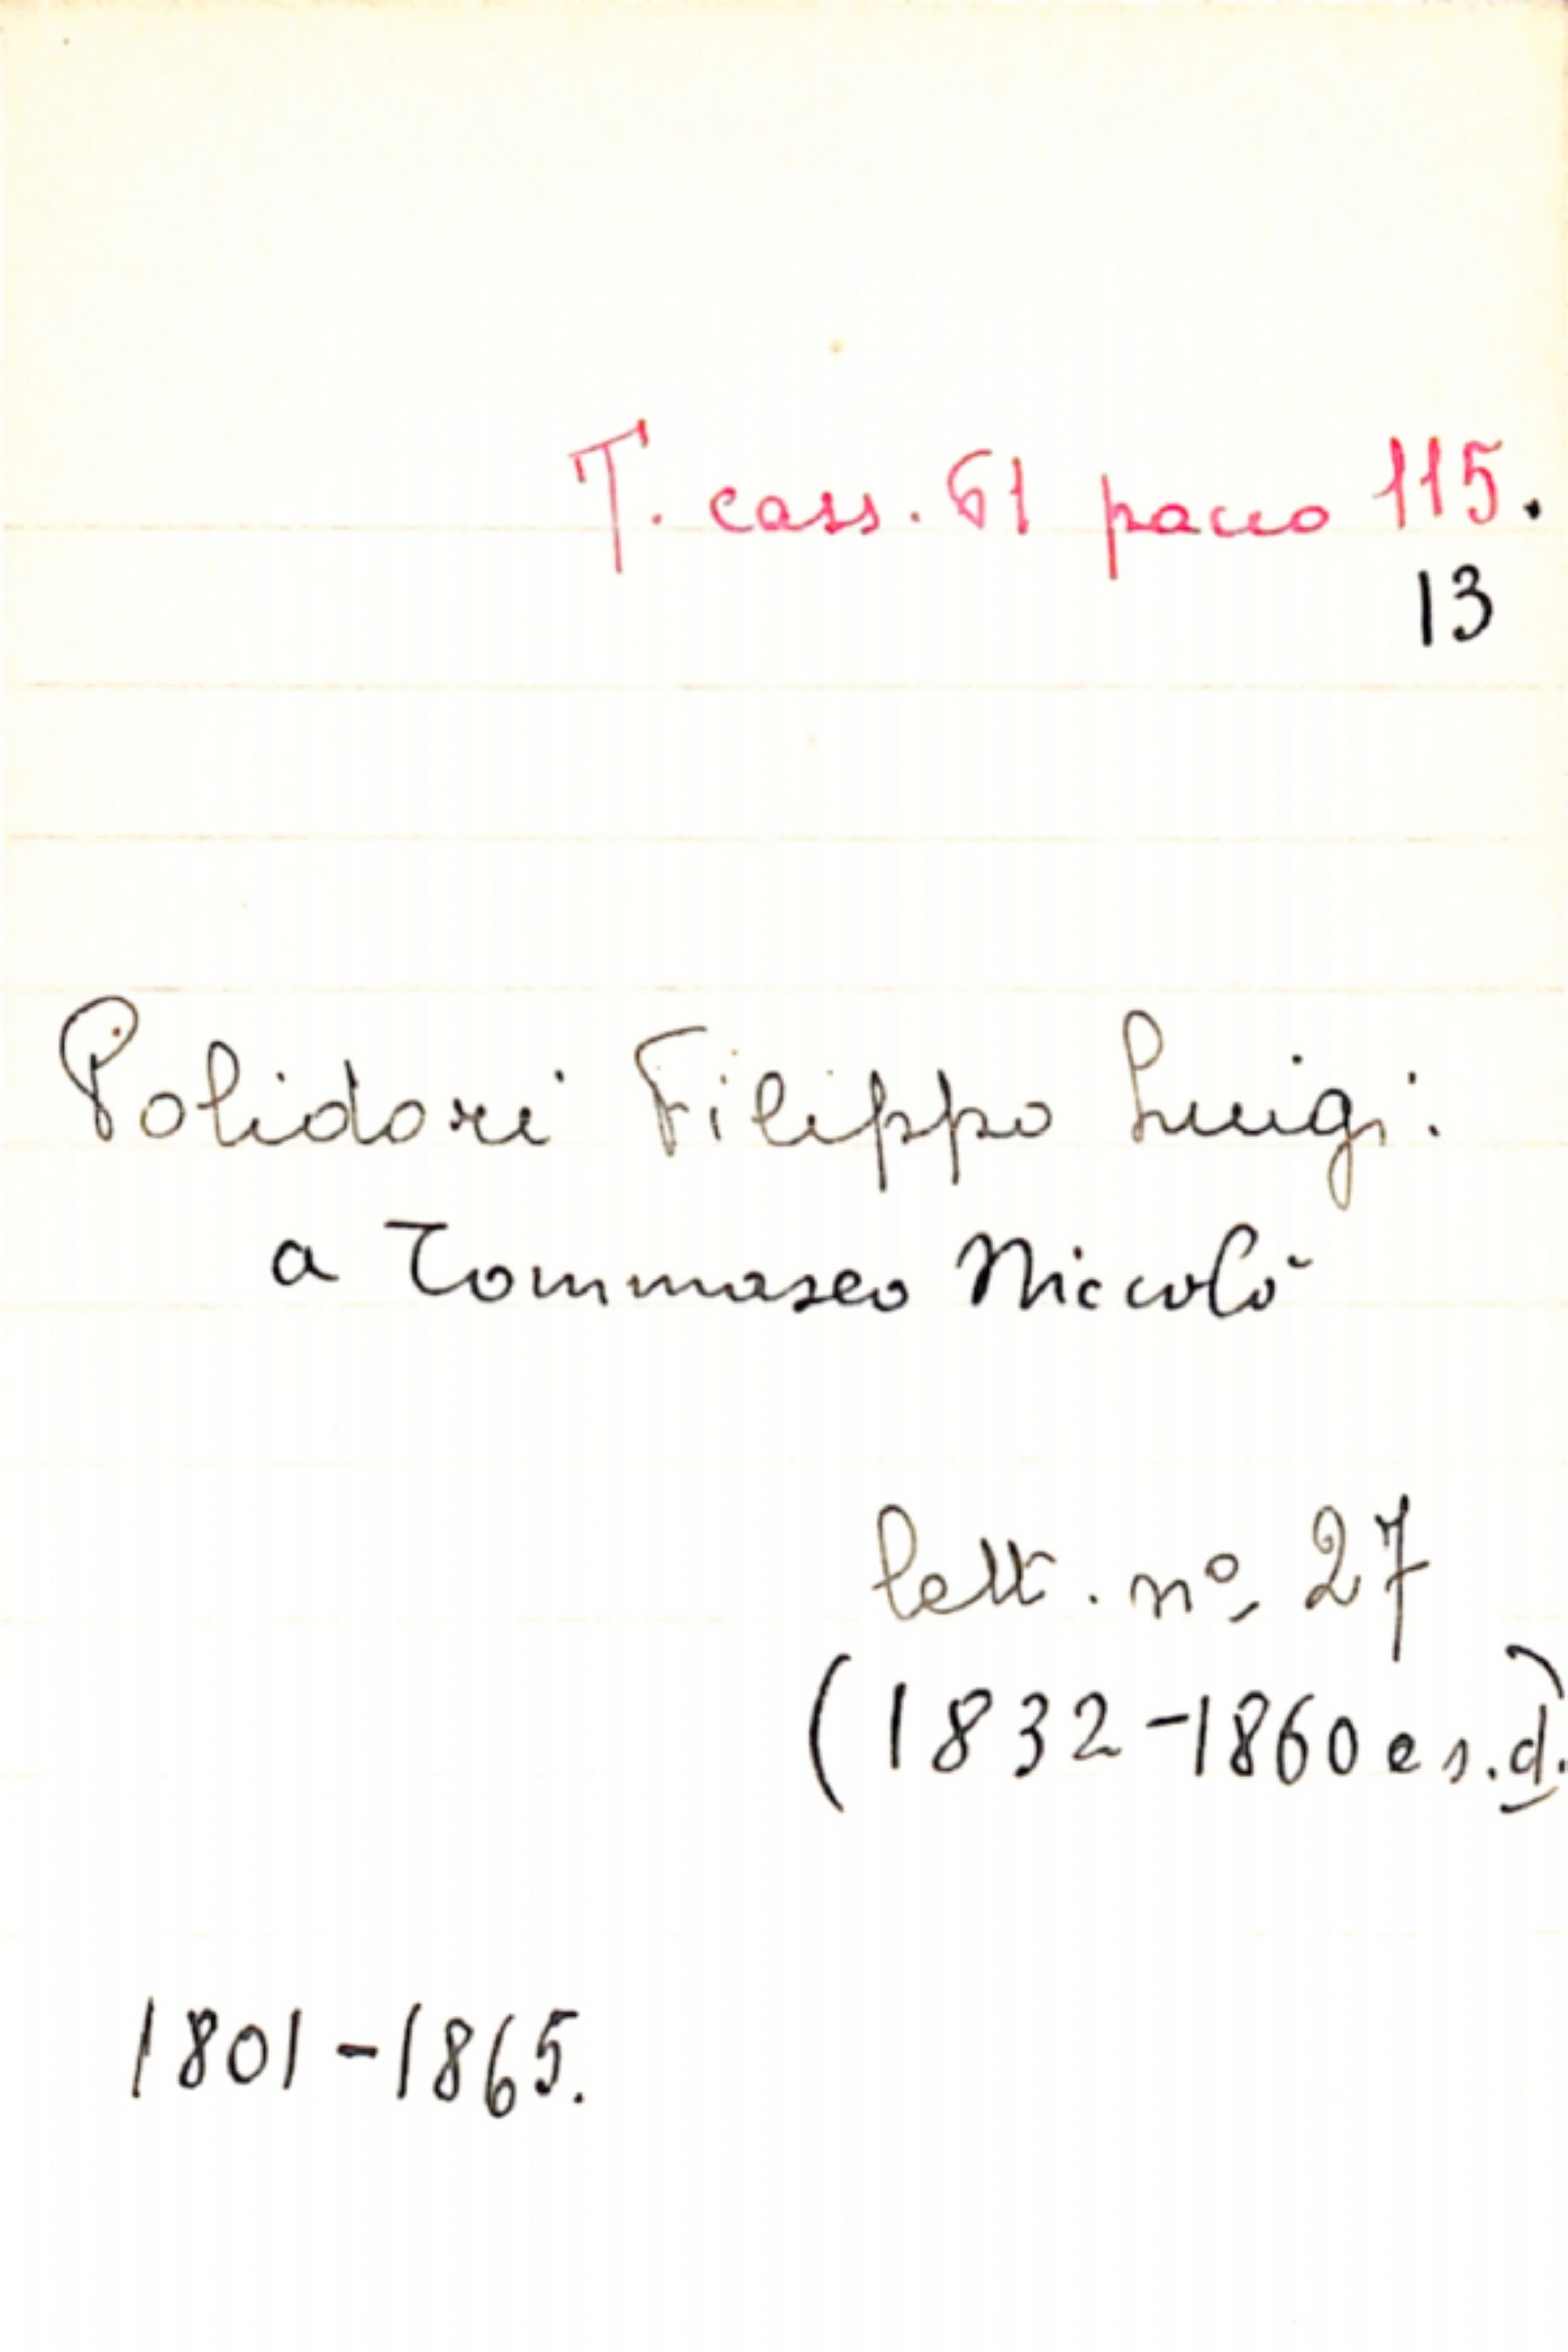 T. cass. 61 pacco 115.
13
Polidori Filippo Luigi:
a Tommaseo Niccolò
lett. nº. 27
(1832-1860 e s.d.)
1801-1865.